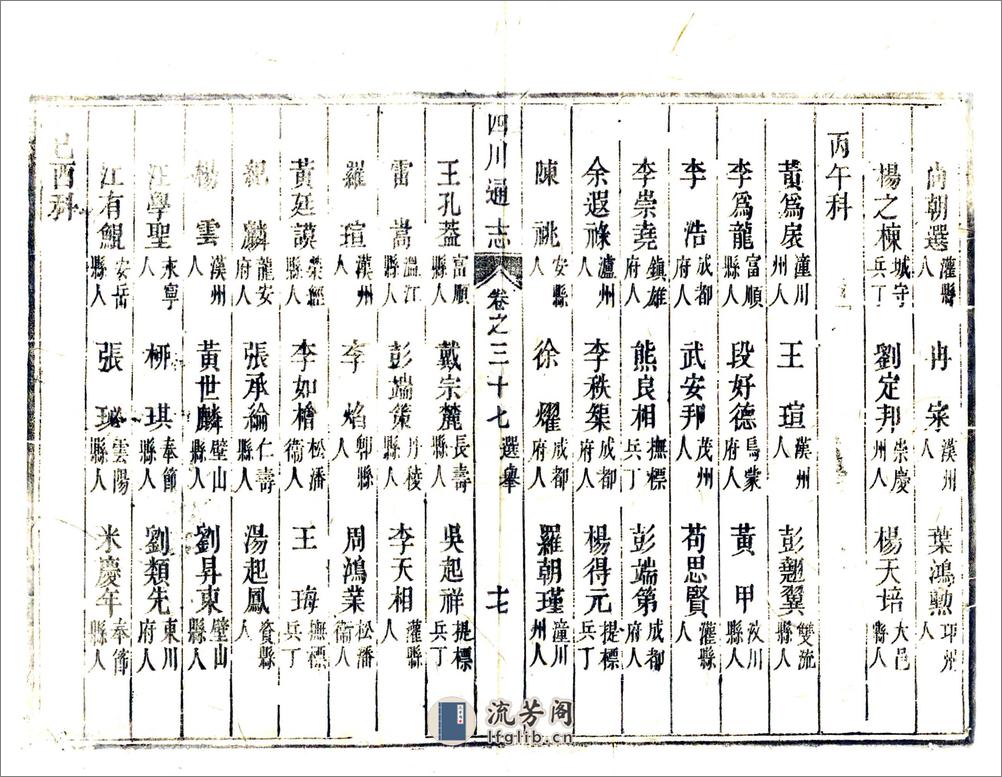 尚朝選灌縣人 冉寀漢州人 葉鴻勲邛州人
楊之棟城守兵丁 劉定邦崇慶州人 楊天培大邑縣人
丙午科
黃爲扆潼川州人 王瑄漢州人 彭翹翼雙流縣人
李爲龍富順縣人 段好德烏蒙府人 黃甲汶川縣人
李浩成都府人 武安邦茂州人 苟思賢灌縣人
李崇堯鎮雄府人 熊良相撫標兵丁 彭端第成都府人
余遐祿瀘州人 李秩榘成都府人 楊得元提標兵丁
陳祧安縣人 徐燿成都府人 羅朝瑾潼川州人
四川通志 卷之三十七 選舉 十七
王孔葢富順縣人 戴宗麓長壽縣人 吳起祥提標兵丁
雷嵩溫江縣人 彭端策丹稜縣人 李天相灌縣人
羅瑄漢州人 李焰郫縣人 周鴻業松潘衞人
黃廷謨榮經縣人 李如檜松潘衞人 王珻撫標兵丁
紀麟龍安府人 張承綸仁壽縣人 湯起鳳資縣人
楊雲漢州人 黃世麟璧山縣人 劉昇東璧山縣人
汪學聖永寧人 柳琪奉節縣人 劉類先東川府人
江有鯤安岳縣人 張珌雲陽縣人 米慶年奉節縣人
己酉科
流芳阁
lfglib.cn